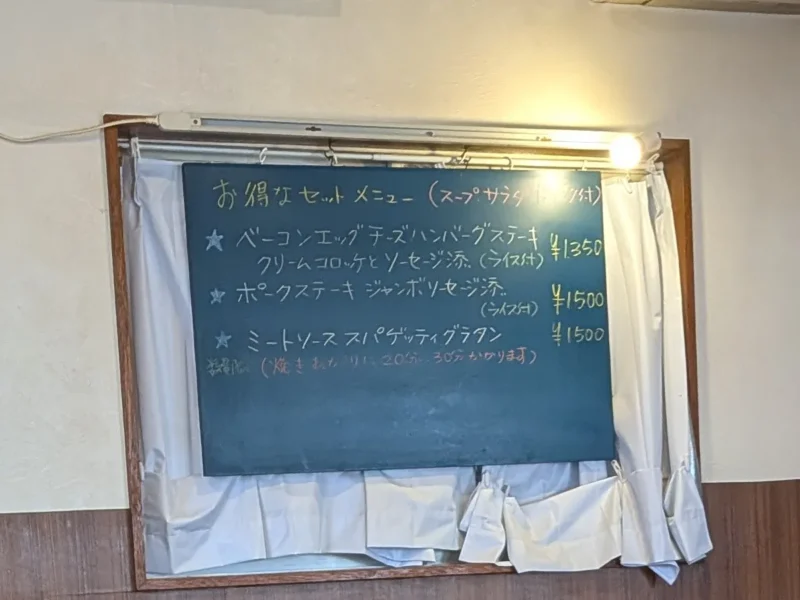 お得なセットメニュー (スープ サラダ 付)
★ ベーコンエッグチーズハンバーグステーキ ¥1350
クリームコロッケとソーセージ添 (ライス付)
★ ポークステーキ ジャンボソーセージ添 ¥1500
(ライス付)
★ ミートソーススパゲッティグラタン ¥1500
20分 30分かかります)